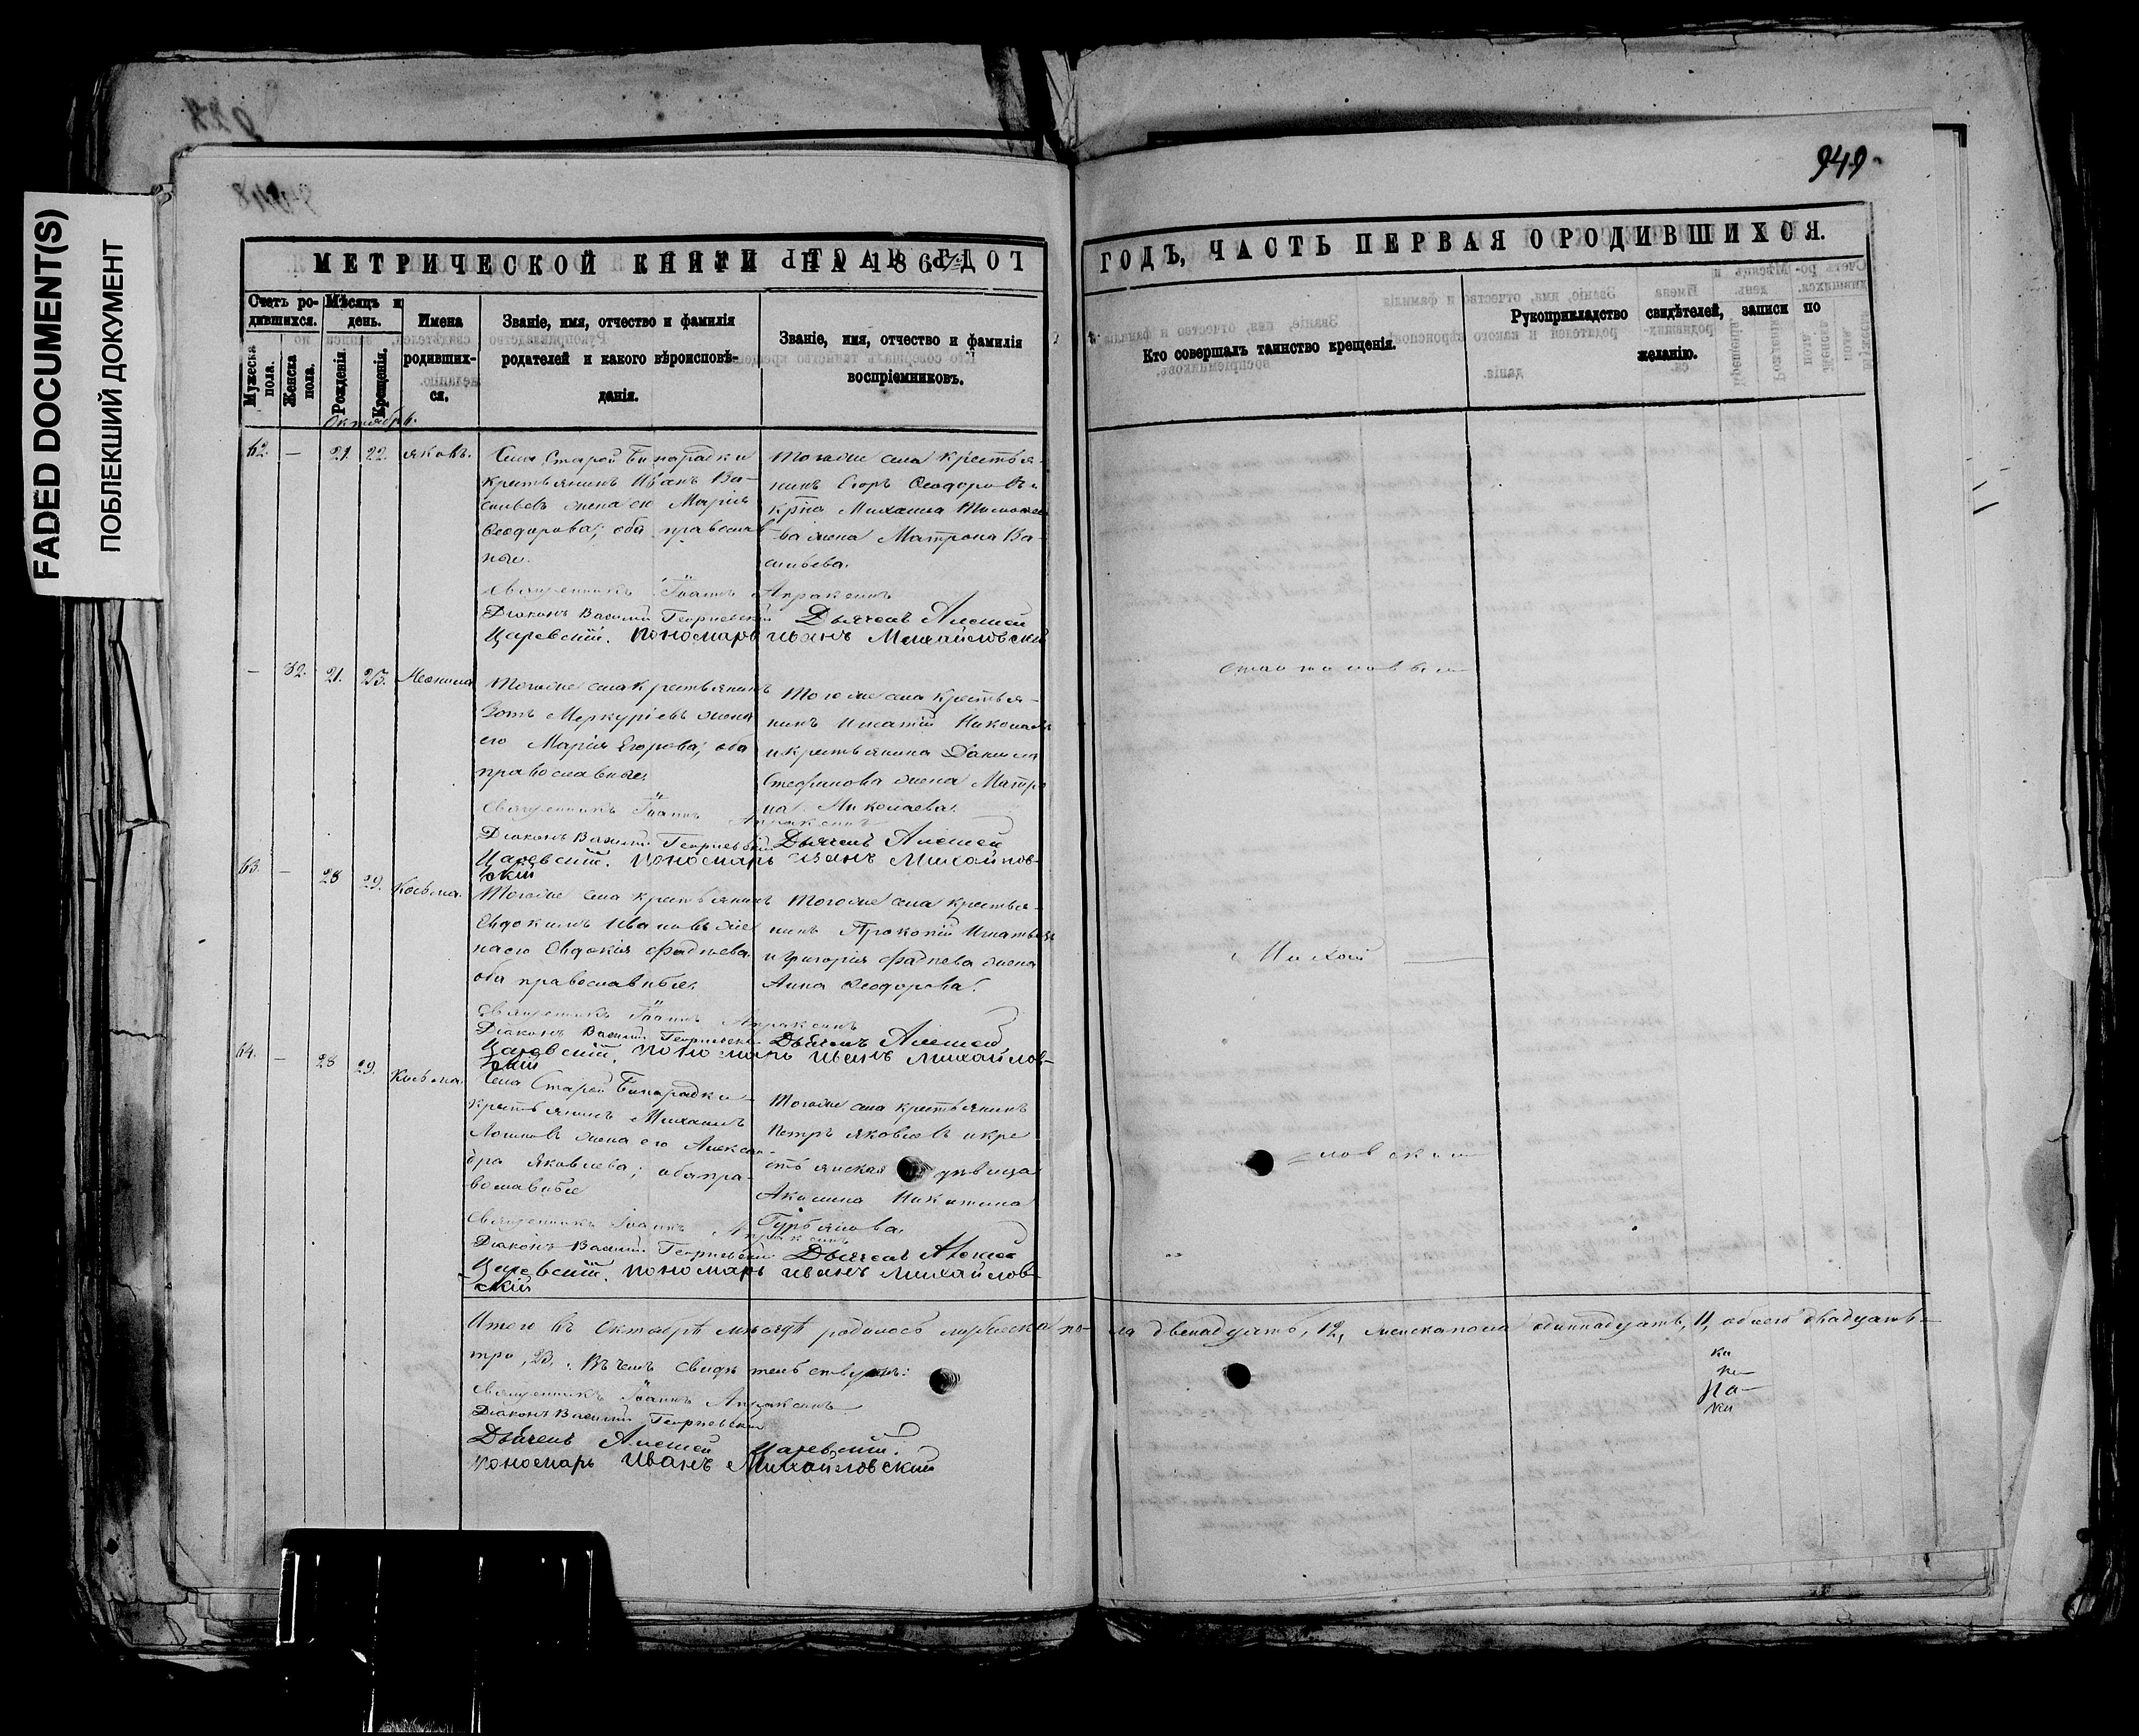 FADED DOCUMENT(S)
ПОБЛЕКШИЙ ДОКУМЕНТ
949
МЕТРИЧЕСКОЙ КНИГИ НА 186
ГОДЪ, ЧАСТЬ ПЕРВАЯ О РОДИВШИХСЯ.
Счетъ родившихся.
Мужеска пола.
Женска пола.
Мѣсяцъ и день.
Рожденія.
Крещенія.
Имена родившихся.
Званіе, имя, отчество и фамилія родителей и какого вѣроисповѣданія.
Званіе, имя, отчество и фамилія воспріемниковъ.
Кто совершалъ таинство крещенія.
Рукоприкладство свидѣтелей, записи по желанію.
Октябрь.
62. — 21. 22. Яковъ.
Села Старой Бинарадки
крестьянинъ Иванъ Ва-
сильевъ жена его Марія
Ѳеодорова; оба православ
ные.
Тогоже села крестья-
нинъ Егоръ Ѳеодоровъ и
кр̃на Михаила Тимоѳее
ва жена Матрона Ва-
сильева.
Священникъ Іоаннъ Апраксинъ
Діаконъ Василій Георгіевскій Дьячекъ Алексей
Царевскій. пономарь Иванъ Михайловскій
— 32. 21. 25. Неонила
Тогоже села крестьянинъ
Зотъ Меркуріевъ жена
его Марія Егорова; оба
православные.
Тогоже села крестья-
нинъ Игнатій Николаевъ
и крестьянина Данила
Стефанова жена Матро
на Николаева.
Священникъ Іоаннъ Апраксинъ
Діаконъ Василій Георгіевскій Дьячекъ Алексей
Царевскій. пономарь Иванъ Михайлов-
скій
63. — 28 29. Косьма.
Тогоже села крестьянинъ
Евдокимъ Ивановъ же
на его Евдокія Фадѣева
оба православные.
Тогоже села крестья-
нинъ Прокопій Игнатьевъ
и Григорія Фадѣева жена
Анна Ѳеодорова.
Священникъ Іоаннъ Апраксинъ
Діаконъ Василій Георгіевскій Дьячекъ Алексей
Царевскій. пономарь Иванъ Михайлов-
скій
64. — 28 29. Косьма.
Села Старой Бинарадки
крестьянинъ Михаилъ
Логиновъ жена его Алексан-
дра Яковлева; оба пра-
вославные
Тогоже села крестьянинъ
Петръ Яковлевъ и кре
стьянская дѣвица
Акилина Никитина
Гурьянова.
Священникъ Іоаннъ Апраксинъ
Діаконъ Василій Георгіевскій Дьячекъ Алексей
Царевскій. пономарь Иванъ Михайлов-
скій
Итого въ Октябрѣ мѣсяцѣ родилось мужеска по- ла двенадцать, 12, женска пола одиннадцать, 11, обоего двадцать
три, 23, Въ чемъ свидѣтельствуемъ:
Священникъ Іоаннъ Апраксинъ
Діаконъ Василій Георгіевскій
Дьячекъ Алексей Царевскій.
пономарь Иванъ Михайловскій